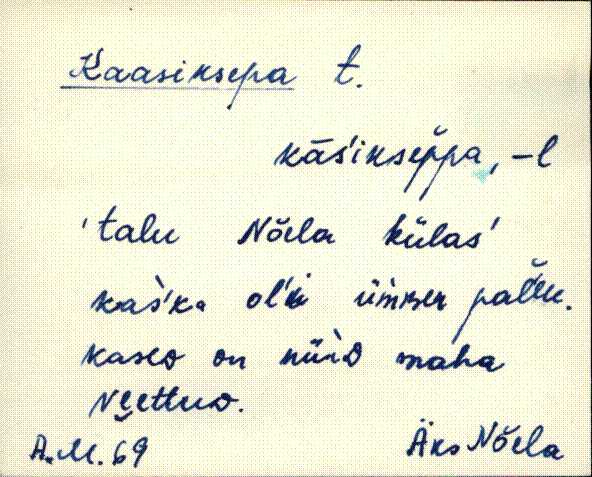 Kaasiksepa t.
kās'iksep̌pa, -l
'talu Nõela külas'
kaš'k. ol'li ümber palĭu.
kased on nüid maha
veettud.
A.M. 69 Äks Nõela